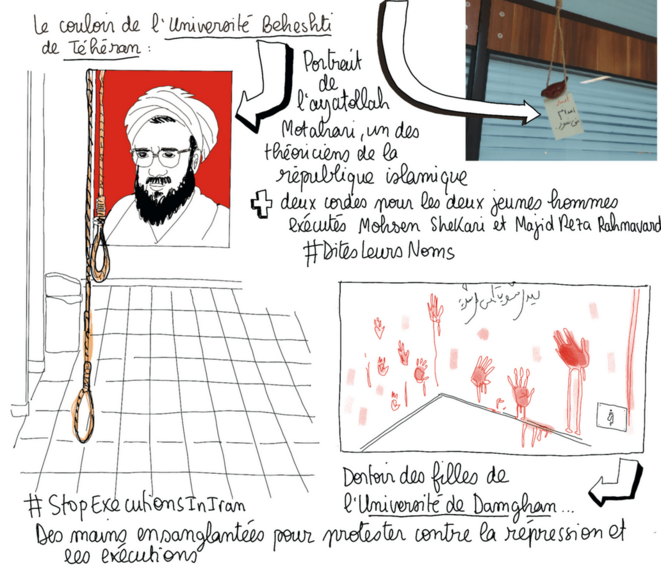 Le couloir de l'Université Beheshti
de Téhéran :
Portrait
de
l'ayatollah
Motahari, un des
théoriciens de la
république islamique
+ deux cordes pour les deux jeunes hommes
exécutés Mohsen Shekari et Majid Reza Rahnavard
#DitesLeursNoms
Dortoir des filles de
l'Université de Damghan...
#StopExecutionsInIran
Des mains ensanglantées pour protester contre la répression et
les exécutions